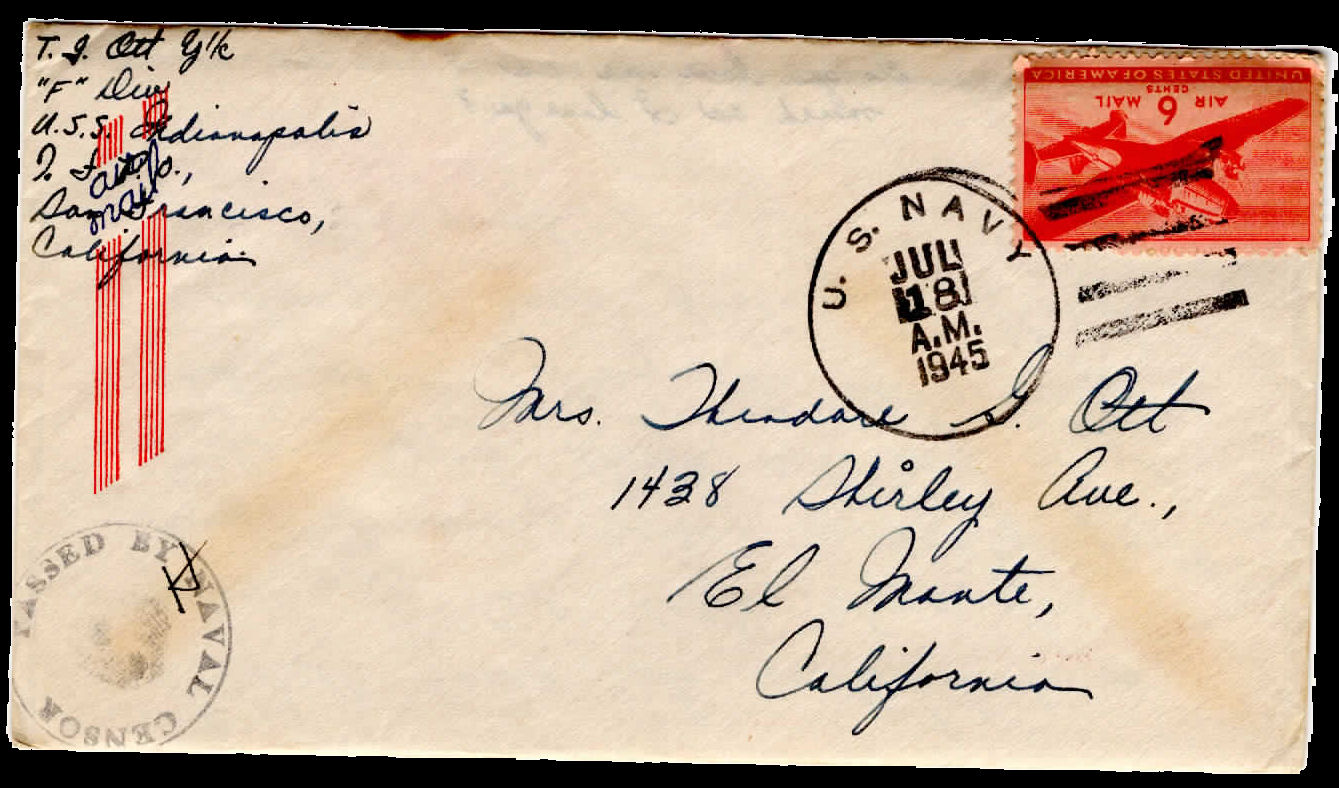 T. G. Ott Y1/c
"F" Div
U.S.S. Indianapolis
San Francisco,
California
UNITED STATES OF AMERICA
CENTS
AIR 6 MAIL
U. S. NAVY
JUL
18
A.M.
1945
Mrs. Theodore G. Ott
1438 Shirley Ave.,
El Monte,
California
PASSED BY NAVAL CENSOR